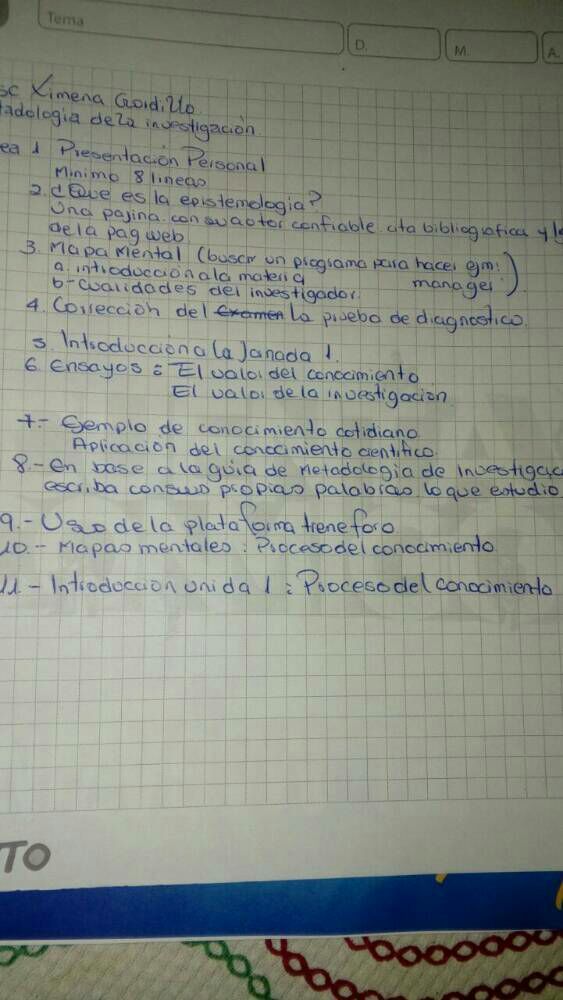 Tema
D.
M.
A.
sc Ximena Gordillo
tadologia de la investigación.
ea 1 Presentación Personal
Minimo 8 lineas
2. ¿Que es la epistemologia?
Una pajina con su actor confiable cita bibliografica y
de la pag web
3. Mapa Mental (buscar un programa para hacer ejm:
a. introduccion a la materia manager)
b- cualidades del investigador.
4. Corrección del examen La prueba de diagnostico.
5. Introduccion a la Janada 1.
6. Ensayos : El valor del conocimiento
El valor de la investigacion.
7.- Ejemplo de conocimiento cotidiano
Aplicación del conocimiento cientifico.
8.- en base a la guia de metadologia de investigac
escriba con sus propias palabras lo que estudio
9.- Uso de la plataforma tiene foro
10.- Mapas mentales : Proceso del conocimiento
11.- Introduccion unida 1 : Proceso del conocimiento
TO